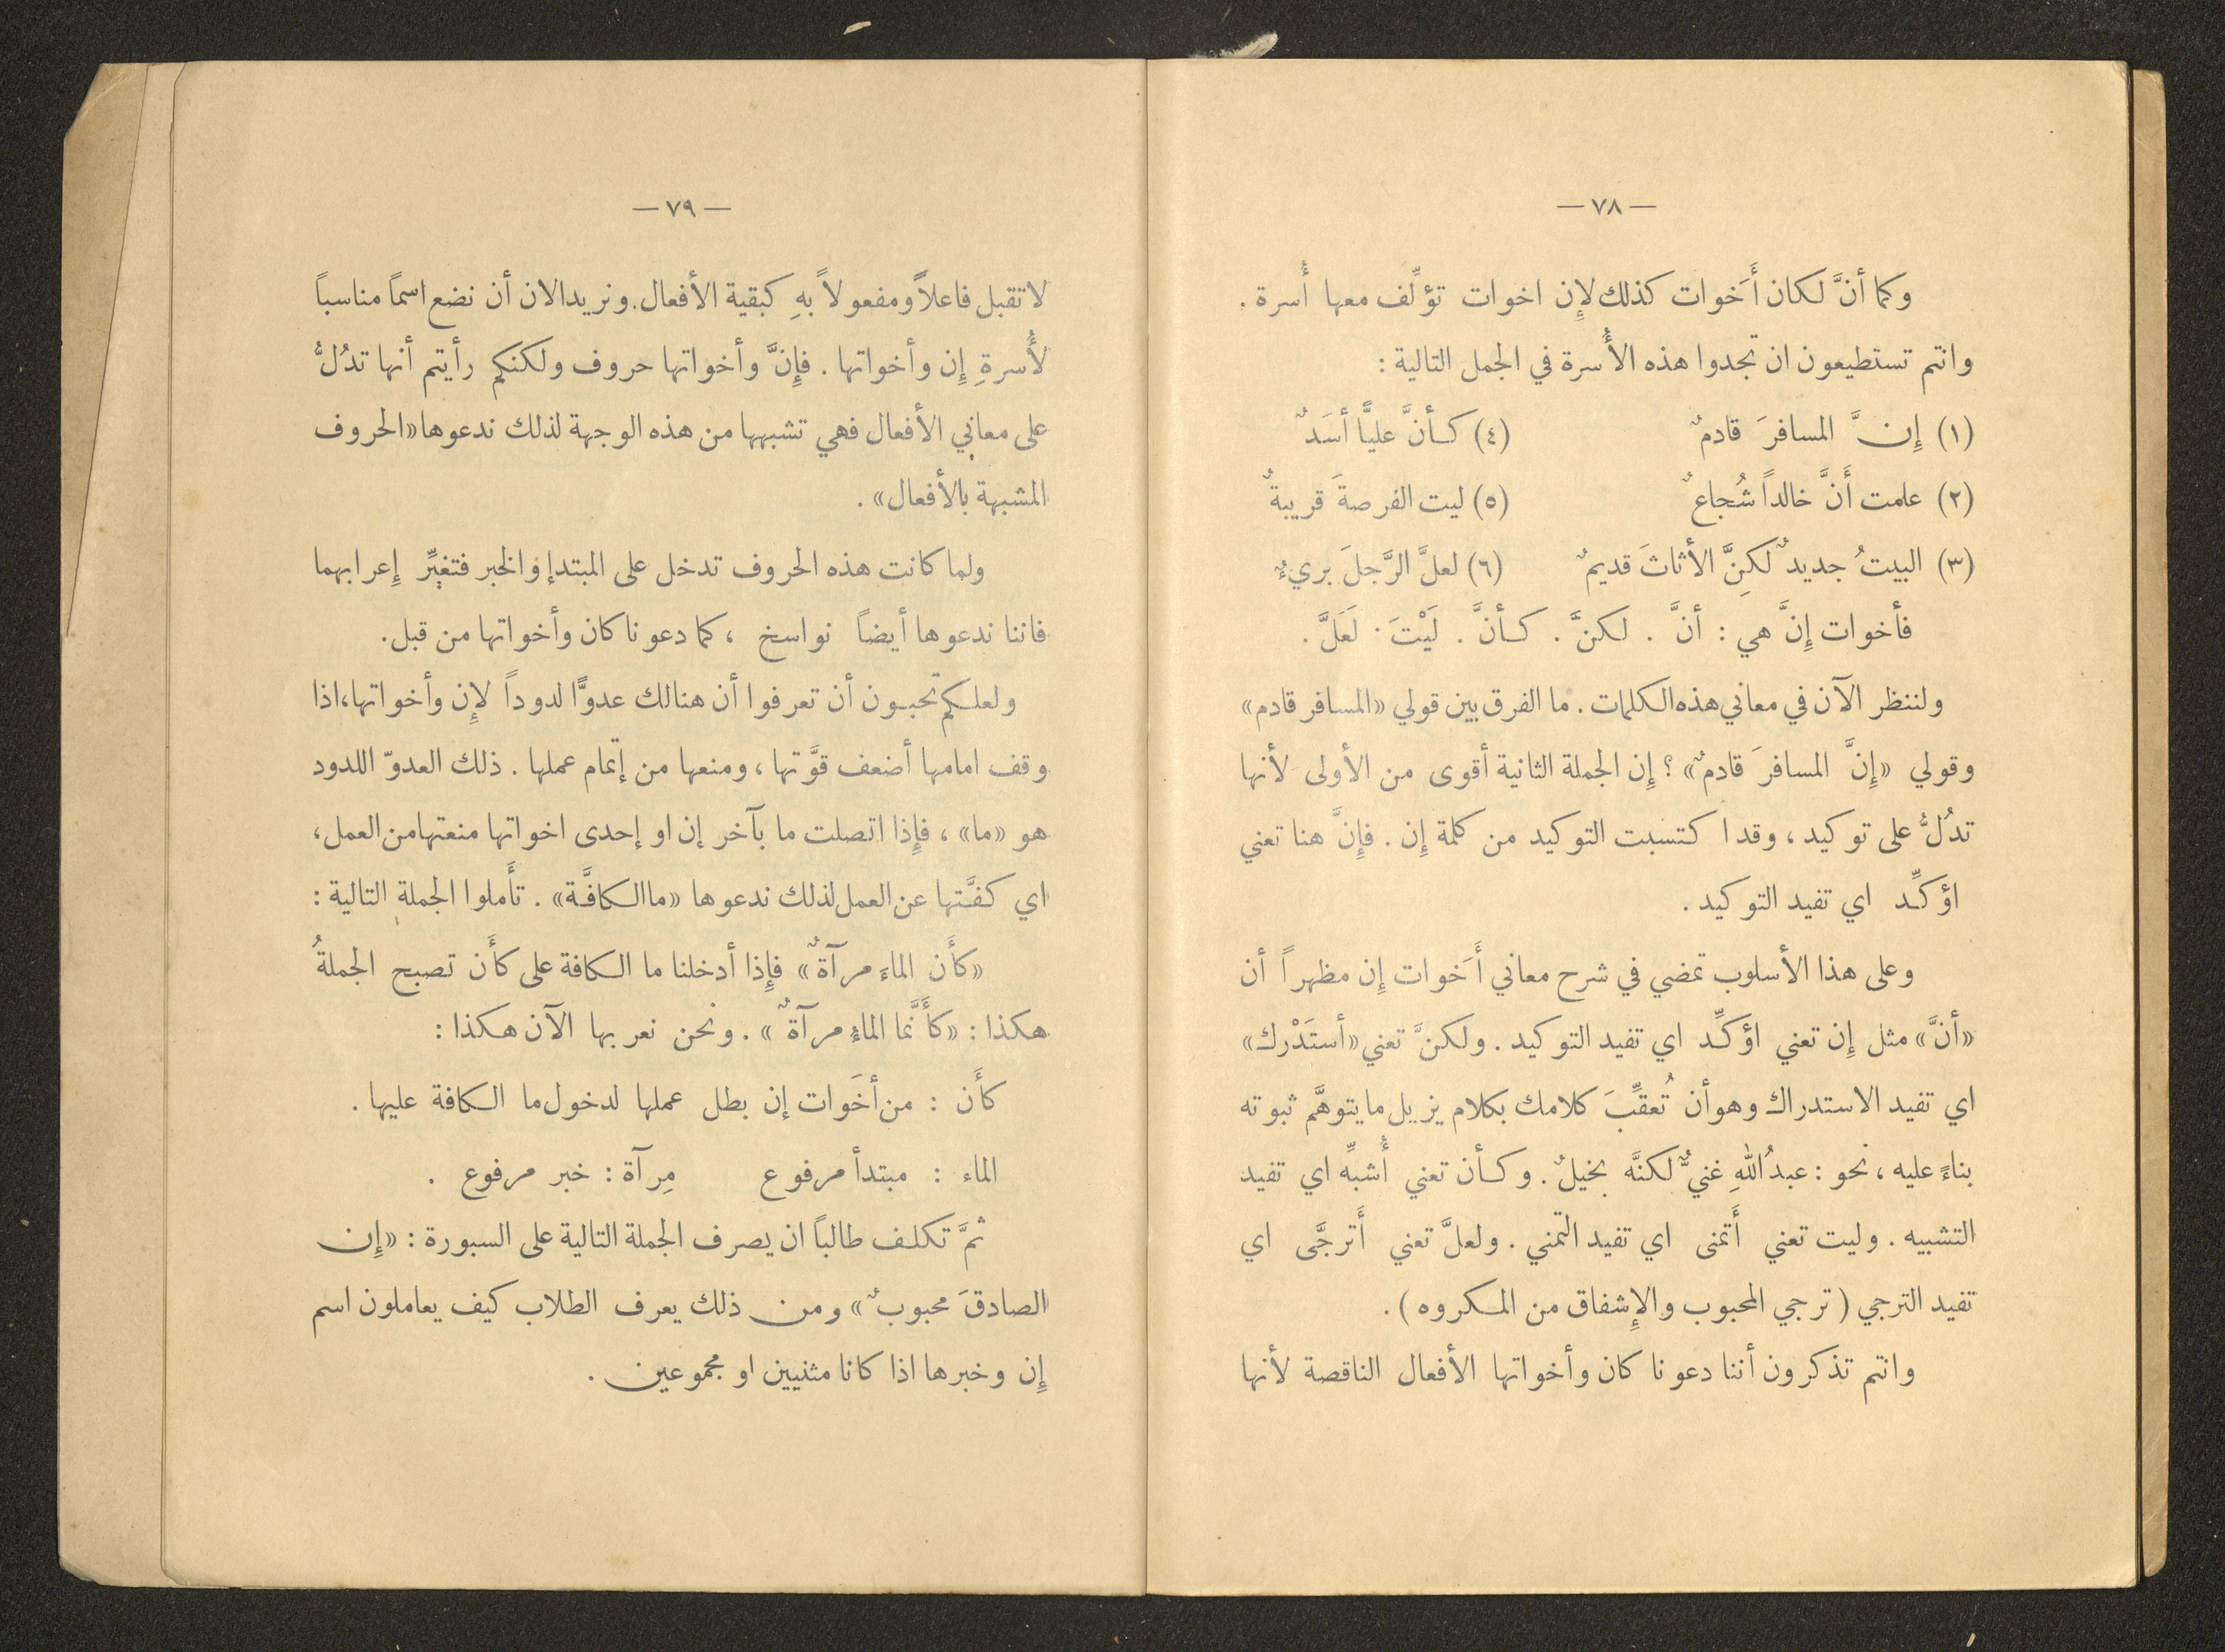 — ٧٨ —
وكما أنَّ لكان أَخوات كذلك لإِن اخوات تؤلِّف معها أُسرة .
وانتم تستطيعون ان تجدوا هذه الأُسرة في الجمل التالية :
(١) إِنَّ المسافرَ قادمٌ (٤) كأنَّ عليًّا أسَدٌ
(٢) علمت أَنَّ خالداً شُجاعٌ (٥) ليت الفرصةَ قريبةٌ
(٣) البيتُ جديدٌ لكِنَّ الأثاثَ قديمٌ (٦) لعلَّ الرَّجلَ بريءٌ
فأخوات إِنَّ هي : أنَّ . لكنَّ . كأنَّ . لَيْتَ . لَعَلَّ .
ولننظر الآن في معاني هذه الكلمات . ما الفرق بين قولي «المسافر قادم»
وقولي «إِنَّ المسافرَ قادمٌ» ؟ إِن الجملة الثانية أقوى من الأولى لأنها
تدُلُّ على توكيد ، وقد اكتسبت التوكيد من كلمة إِن . فإِنَّ هنا تعني
اؤكِّد اي تفيد التوكيد .
وعلى هذا الأسلوب تمضي في شرح معاني أَخوات إِن مظهراً أن
«أنَّ» مثل إِن تعني اؤكِّد اي تفيد التوكيد . ولكنَّ تعني «أستَدْرك»
اي تفيد الاستدراك وهو أن تُعقِّبَ كلامك بكلام يزيل ما يتوهَّم ثبوته
بناءً عليه ، نحو : عبدُ اللهِ غنيٌّ لكنَّه بخيلٌ . وكأن تعني أُشبِّه اي تفيد
التشبيه . وليت تعني أَتمنى اي تفيد التمني . ولعلَّ تعني أَترجَّى اي
تفيد الترجي ( ترجي المحبوب والإِشفاق من المكروه ) .
وانتم تذكرون أننا دعونا كان وأخواتها الأفعال الناقصة لأنها
— ٧٩ —
لا تقبل فاعلاً ومفعولاً بهِ كبقية الأفعال . ونريد الان أن نضع اسماً مناسباً
لأُسرةِ إِن وأخواتها . فإِنَّ وأخواتها حروف ولكنكم رأيتم أنها تدُلُّ
على معاني الأفعال فهي تشبهها من هذه الوجهة لذلك ندعوها «الحروف
المشبهة بالأفعال» .
ولما كانت هذه الحروف تدخل على المبتدإ والخبر فتغيِّر إِعرابهما
فاننا ندعوها أيضاً نواسخ ، كما دعونا كان وأخواتها من قبل .
ولعلكم تحبون أن تعرفوا أن هنالك عدوًّا لدوداً لإِن وأخواتها، اذا
وقف امامها أضعف قوَّتها ، ومنعها من إتمام عملها . ذلك العدوّ اللدود
هو «ما» ، فإِذا اتصلت ما بآخر إن او إحدى اخواتها منعتها من العمل ،
اي كفَّتها عن العمل لذلك ندعوها «ما الكافَّة» . تأَملوا الجملة التالية :
«كأَن الماءَ مرآةٌ» فإِذا أدخلنا ما الكافة على كأَن تصبح الجملةُ
هكذا : «كأَنَّما الماءُ مرآةٌ» . ونحن نعربها الآن هكذا :
كأَن : من أخَوات إن بطل عملها لدخول ما الكافة عليها .
الماء : مبتدأ مرفوع مِرآة : خبر مرفوع .
ثمَّ تكلف طالباً ان يصرف الجملة التالية على السبورة : «إِن
الصادقَ محبوبٌ» ومن ذلك يعرف الطلاب كيف يعاملون اسم
إِن وخبرها اذا كانا مثنيين او مجموعين .